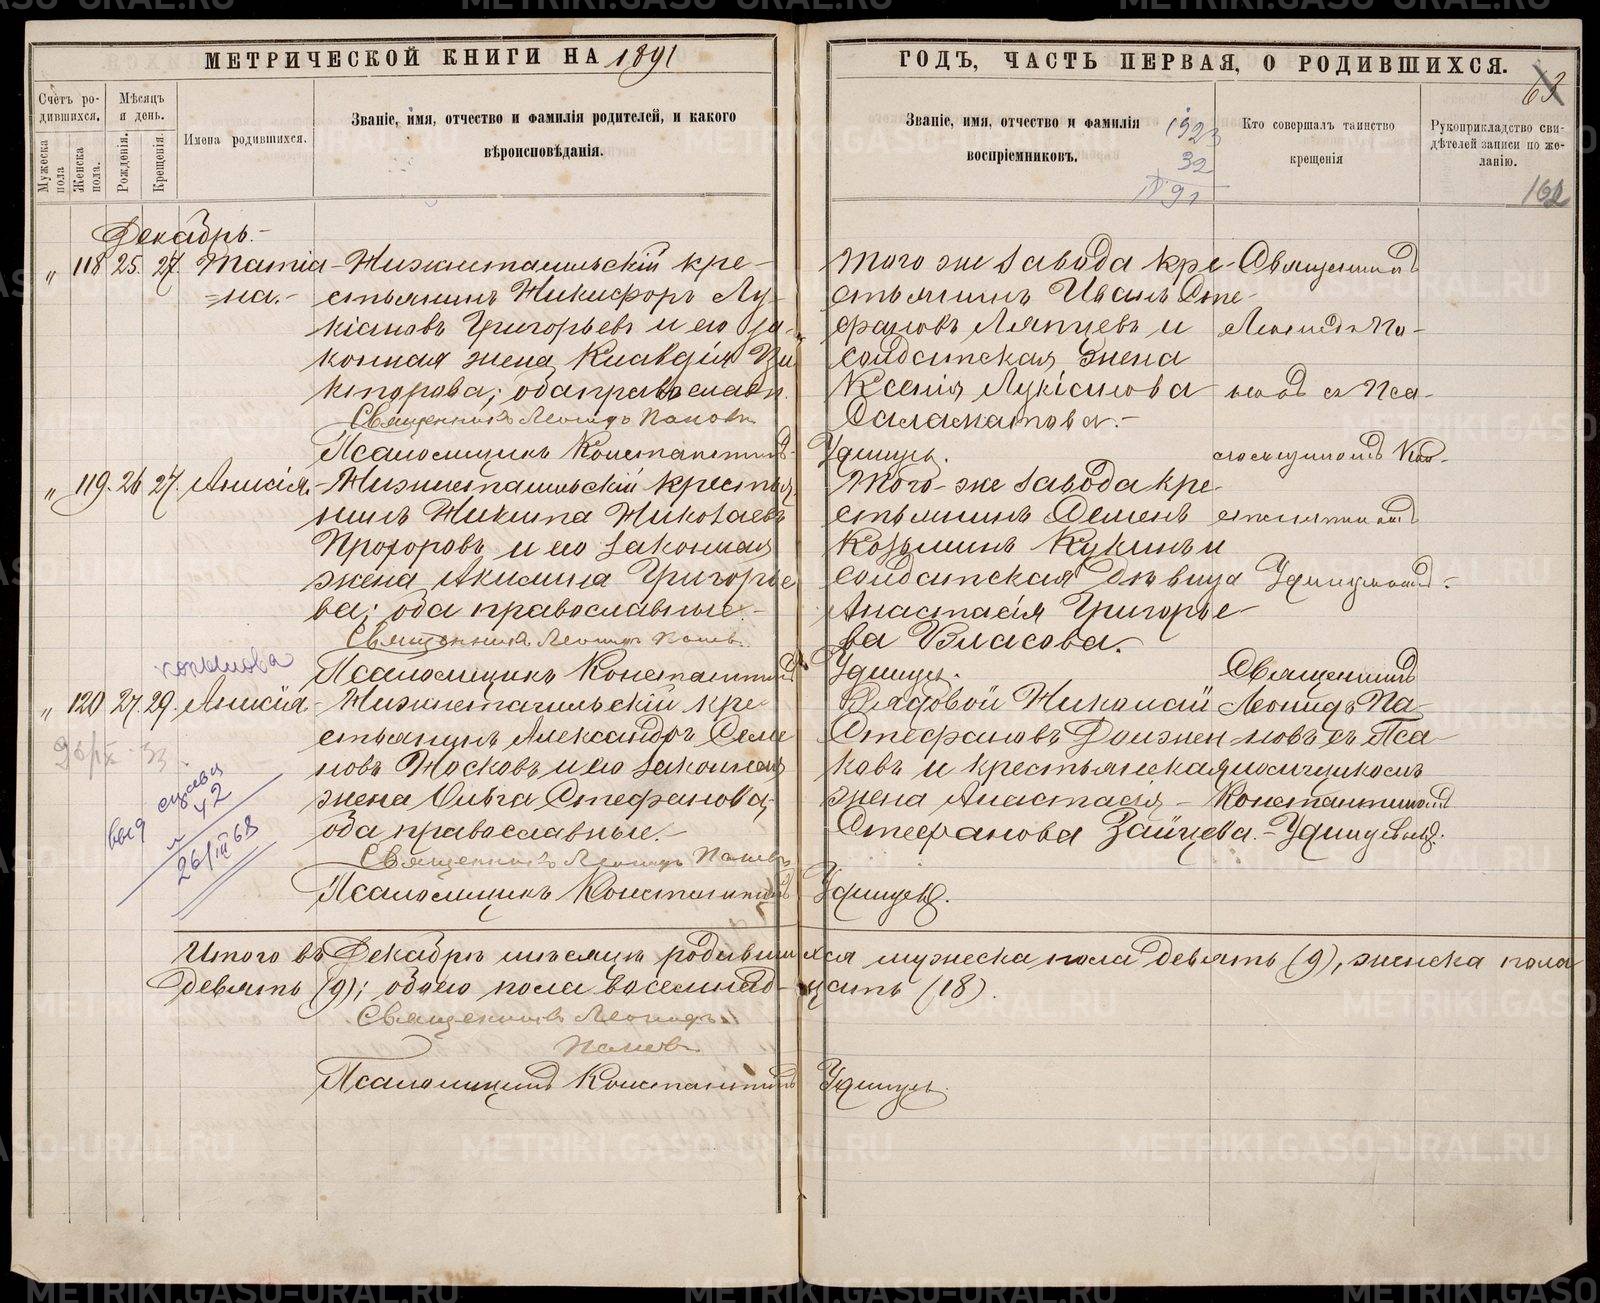 МЕТРИЧЕСКОЙ КНИГИ НА 1891
ГОДЪ, ЧАСТЬ ПЕРВАЯ, О РОДИВШИХСЯ.
63
Счетъ родившихся.
Мужеска пола
Женска пола.
Мѣсяцъ и день.
Рожденія.
Крещенія.
Имена родившихся.
Званіе, имя, отчество и фамилія родителей, и какого
вѣроисповѣданія.
Званіе, имя, отчество и фамилія
воспріемниковъ.
1923
32
91
Кто совершалъ таинство
крещенія
Рукоприкладство сви-
дѣтелей записи по же-
ланію.
162
Декабрь.
" 118 25. 27. Татіа-
=на.-
Нижнетагильскій кре-
стьянинъ Никифоръ Лу-
кіановъ Григорьевъ и его за-
конная жена Клавдія Ви
кторова; оба православн.
Священникъ Леонидъ Поповъ
Псаломщикъ Константинъ Удинцевъ.
Того же завода кре-
стьянинъ Иванъ Сте-
фановъ Ляпцевъ и
солдатская жена
Ксенія Лукіанова
Саламатова.-
Священникъ
Леонидъ По-
повъ съ Пса-
ломщикомъ Кон-
стантиномъ
Удинцевымъ.
" 119. 26 27. Анисія.
Нижнетагильскій крестья
нинъ Никита Николаевъ
Прохоровъ и его законная
жена Акилина Григорье
ва; оба православные.-
Священникъ Леонидъ Поповъ
Псаломщикъ Константинъ Удинцевъ.
Того-же завода кре-
стьянинъ Семенъ
Козьминъ Кукинъ и
солдатская дѣвица
Анастасія Григорье-
ва Власова.
копылова
" 120 27. 29. Анисія-
Нижнетагильскій кре-
стьянинъ Александръ Семе
новъ Носковъ и его законная
жена Ольга Стефанова,
оба православные.-
Священникъ Леонидъ Поповъ
Псаломщикъ Константинъ Удинцевъ.
Рядовой Николай
Стефановъ Должен
ковъ и крестьянская
жена Анастасія
Стефанова Зайцева.-
Священникъ
Леонидъ По-
повъ съ Пса
ломщикомъ
Константиномъ
Удинцевымъ.
26/IX-33
выд
42
26/III 68
Итого въ Декабрѣ мѣсяцѣ родившихся мужеска пола девять (9), женска пола
девять (9); обоего пола восемнад-цать (18).
Священникъ Леонидъ
Поповъ
Псаломщикъ Константинъ Удинцевъ.
METRIKI.GASO-URAL.RU